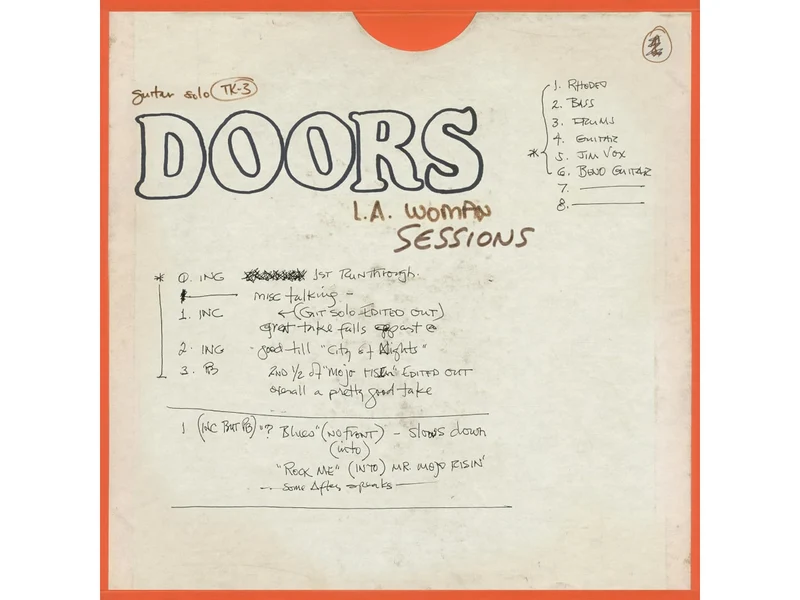 guitar solo TK-3
DOORS
L.A. WOMAN
SESSIONS
1. RHODES
2. BASS
3. DRUMS
4. GUITAR
* 5. JIM VOX
6. BEND GUITAR
7.
8.
* 0. INC 1ST RUNTHROUGH.
misc talking -
1. INC ←(GIT SOLO EDITED OUT)
great take falls apart @
2. ING good till "City of Nights"
3. PB 2ND 1/2 of "MOJO RISIN" EDITED OUT
overall a pretty good take
1 (INC BUT PB) "? Blues" (NO FRONT) - slows down
(into)
"ROCK ME" (INTO) MR. MOJO RISIN'
— Some After speaks —